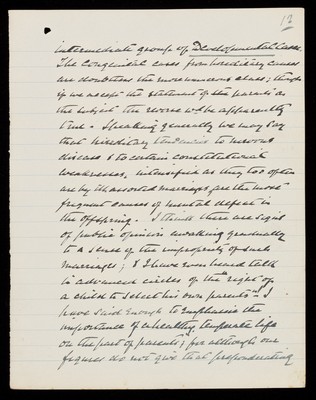 12
intermediate group of Developmental cases.
The Congenital cases from hereditary causes
are doubtless the more numerous class; though
if we accept the statement of the parents on
the subject the reverse wd be apparently
true. Speaking generally we may say
that hereditary tendencies to nervous
disease & to certain constitutional
weaknesses, intensified as they too often
are by ill assorted marriages are the most
frequent causes of mental defect in
the offspring. I think there are signs
of public opinion awaking gradually
to a sense of the impropriety of such
marriages; & I have even heard talk
in advanced circles of the "right of
a child to select his own parents". I
have said enough to emphasise the
importance of a healthy, temperate life
on the part of parents; for although our
figures do not give that preponderating